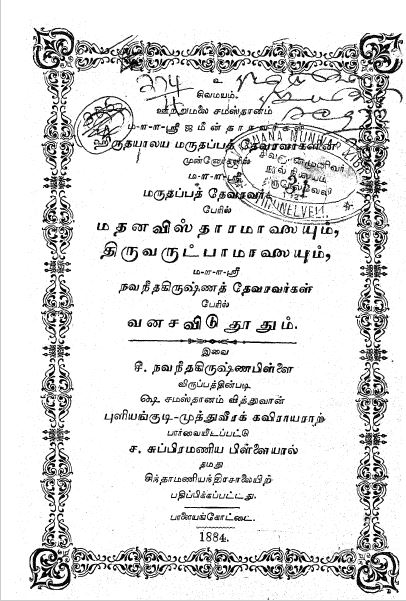 வெமயம்.
ஊற்றுமலை சமஸ்தானம்
ம-ள-ள-ஸ்ரீ ஜமீன்தாரவர்
ஹிருதயாலய மருதப்பத் தேவரவர்களின்
முன்னோர்களில்
ம-ள-ள-ஸ்ரீ
மருதப்பத் தேவரவர்
பேரில்
மதனவிஸ்தாரமாலையும்,
திருவருட்பாமாலையும்,
ம-ள-ள-ஸ்ரீ
நவநீதகிருஷ்ணத் தேவரவர்கள்
பேரில்
வனசவிடு தூதும்.
இவை
ஈ. நவநீதகிருஷ்ணபிள்ளை
விருப்பத்தின்படி
ஷை சமஸ்தானம் வித்துவான்
புளியங்குடி-முத்துவீரக் கவிராயராற்
பார்வையிடப்பட்டு
ச. சுப்பிரமணிய பிள்ளையால்
தமது
சிந்தாமணியந்திரசாலையிற்
பதிப்பிக்கப்பட்டது.
பாளையங்கோட்டை.
1884.